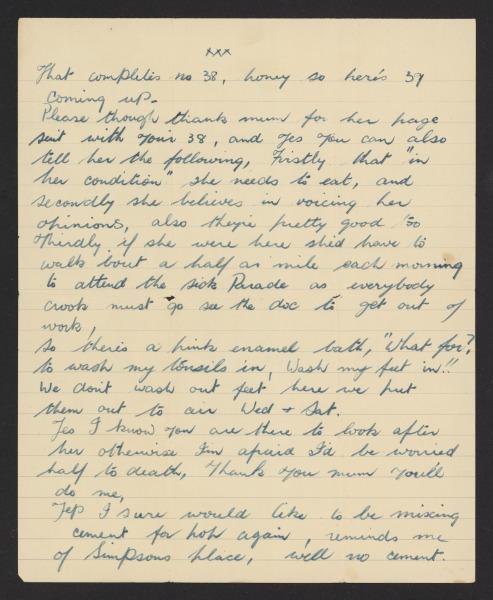 xxx
That completes no 38, honey so here's 39
coming up.
Please though thank mum for her page
sent with your 38, and yes you can also
tell her the following, Firstly that "in
her condition" she needs to eat, and
secondly she believes in voicing her
opinions, also they're pretty good too
Thirdly if she were here she'd have to
walk bout a half an mile each morning
to attend the sick Parade as everybody
crook must go see the doc to get out of
work,
so there's a pink enamel bath, "What for?,
to wash my tonsils in, Wash my feet in!!
We don't wash out feet here we put
them out to air Wed + Sat.
Yes I know you are there to look after
her otherwise I'm afraid I'd be worried
half to death, Thank you mum you'll
do me,
Yep I sure would like to be mixing
cement for pop again, reminds me
of Simpsons place, well no cement.